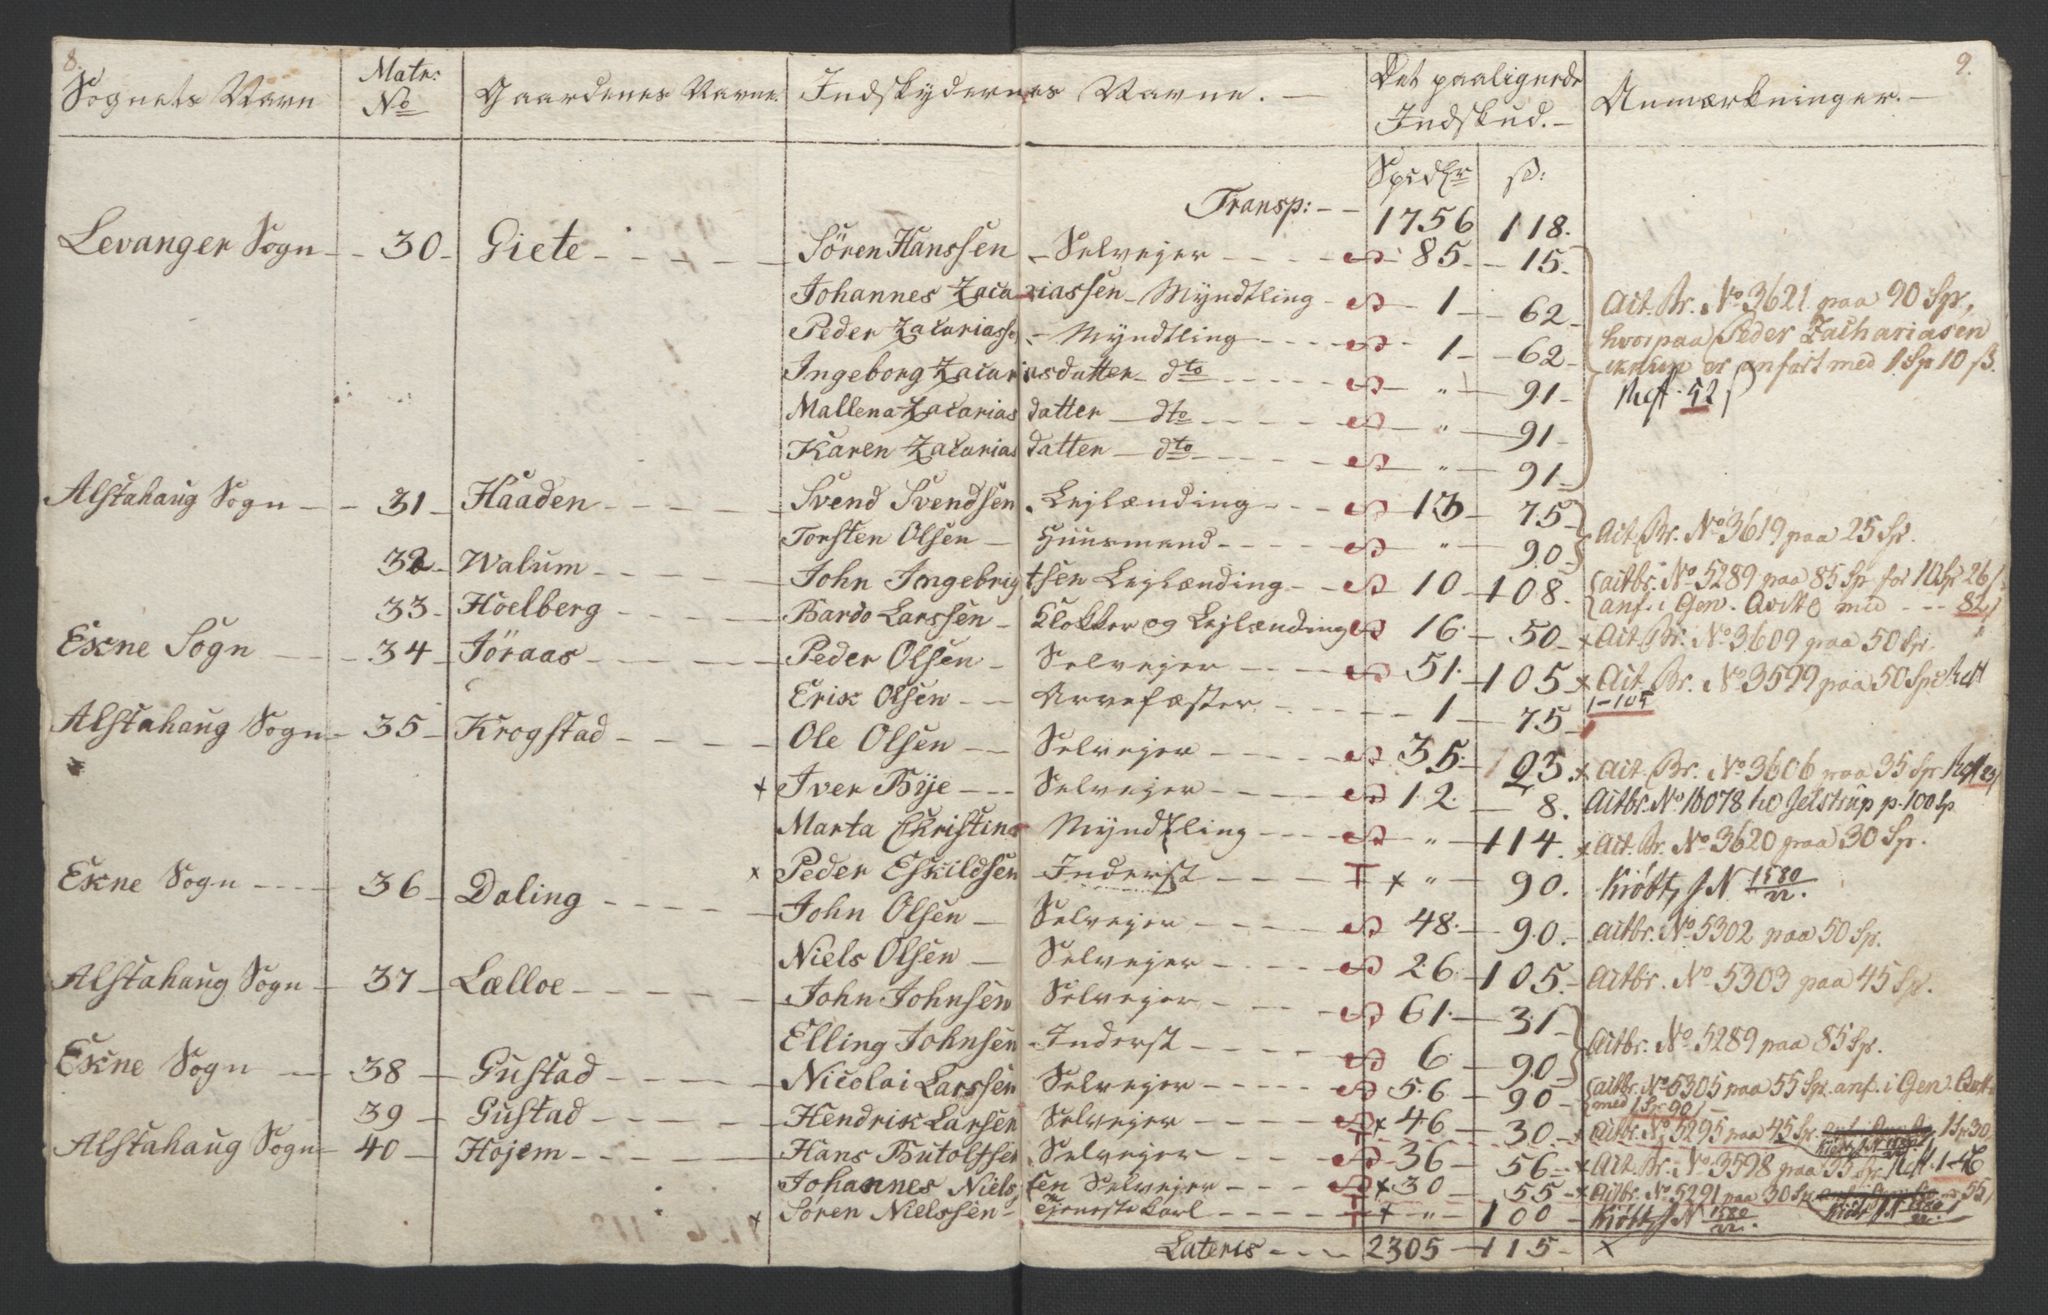 8.
9.
Sognets Navn Matr: No Gaardenes Navne. Indskydernes Navne. — Det paalignede Indskud. — Anmærkninger. —
Specdlr ß:
Transp: — 1756 118.
Levanger Sogn — 30 — Giete — Sören Hanssen — Selvejer — 85 — 15
Johannes Zacariassen — Myndtling — 1 — 62 Act. Br. No 3621 paa 90 Sp,
Peder Zacariasse — Myndtling — 1 — 62 hvorpaa Peder Zachariasen
Ingeborg Zacariasdatter — dto — " — 91 er anført med 1 Sp 10 ß.
Mallena Zacariasdatter — dto — " — 91 52 ß
Karen Zacariasdatter — dto — " — 91
Alstahaug Sogn — 31 — Haaden — Svend Svendsen — Lejlænding — 13 — 75
Torsten Olsen — Huusmand — " — 90 Act. Br. No 3619 paa 25 Sp.
32 — Walum — John Ingebrigtsen Lejlænding — 10 — 108. actbr. No 5289 paa 85 Sp for 10 Sp 26 ß
anf. i Gen. med — 82 ß
33 — Hoelberg — Bardo Larssen — Klokker og Lejlænding 16 — 50 — x Act. Br. No 3609 paa 50 Sp.
Exne Sogn — 34 — Jöraas — Peder Olsen — Selvejer — 51 — 105 x Act. Br. No 3599 paa 50 Sp Rest
1-105
Erik Olsen — Arvefæster — 1 — 75
Alstahaug Sogn — 35 — Krogstad — Ole Olsen — Selvejer — 35 — 23. x Act. Br. No 3606 paa 35 Sp. Rest 23 ß
x Iver Bye — Selvejer — 12 — 8. Actbr. No 10078 Jelstrup p. 100 Sp
Marta Christina Myndtling — " — 114. x Act. Br. No 3620 paa 30 Sp.
x Peder Eskildsen Inderst — T x " — 90. J N 1580/22.
Exne Sogn — 36 — Daling — John Olsen — Selvejer — 48 — 90. Actbr. No 5302 paa 50 Sp.
Niels Olsen — Selvejer — 26 — 105. Actbr. No 5303 paa 45 Sp.
Alstahaug Sogn — 37 — Lælloe — John Johnsen Selvejer — 61 — 31
Elling Johnsen — Inderst — 6 — 90 Actbr. No 5289 paa 85 Sp.
Exne Sogn — 38 — Gustad — Nicolai Larssen Selvejer — 56 — 90 actbr. No 5305 paa 55 Sp. anf. i Gen.
med 1 Sp 90 ß
39 — Gustad — Hendrik Larsen Selvejer — x 46 — 30 — x Actbr. No 5295 paa 45 Sp. 1 Sp 30 ß
Alstahaug Sogn — 40 — Hojem — Hans Butolfsen Selvejer — 36 — 56 — x Act. Br. No 3598 paa 35 Sp. Rest 1-56
Johannes Nielssen Selvejer — x 30 — 55 — x Actbr. No 5291 paa 30 Sp 55 ß
x Sören Nielssen — Tjeneste Karl — T x " — 100 — J N 1580/22.
Lateris — 2305 — 115 — x